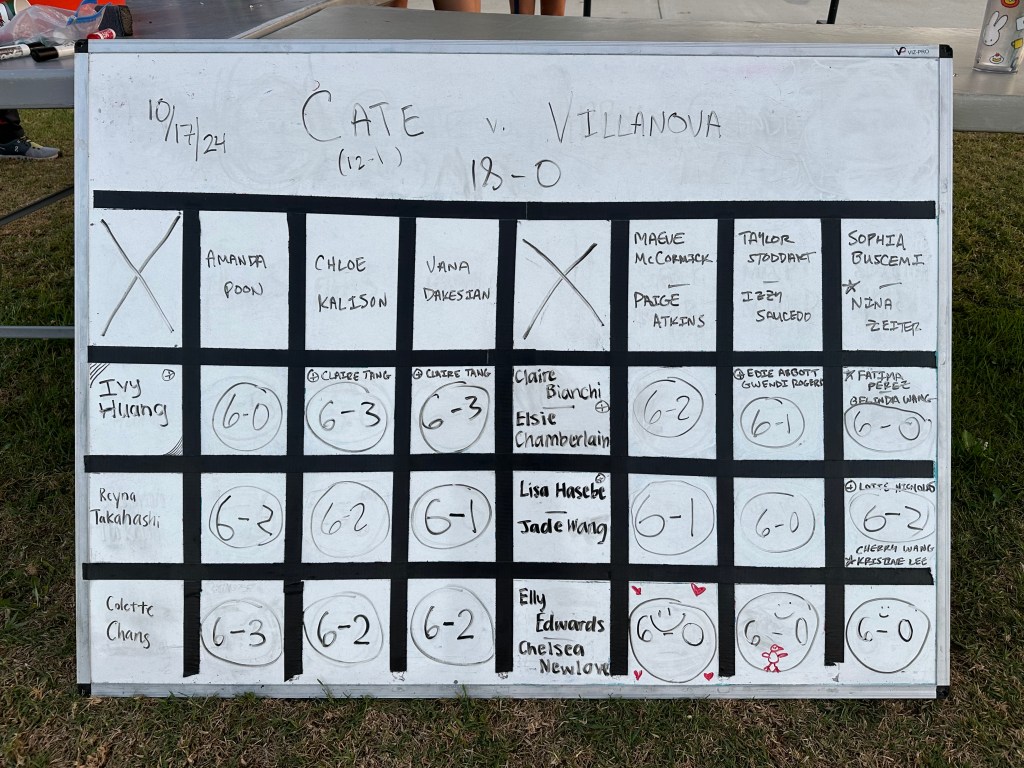 VIZ-PRO
10/17/24
CATE v. VILLANOVA
(12-1)
18-0
AMANDA
POON
CHLOE
KALISON
VANA
DAKESIAN
MAEVE
McCORMICK
—
PAIGE
ATKINS
TAYLOR
STODDART
—
IZZY
SAUCEDO
SOPHIA
BUSCEMI
—
☆ NINA
ZEITER.
Ivy
Huang
6-0
CLAIRE TANG
6-3
CLAIRE TANG
6-3
Claire
Bianchi
—
Elsie
Chamberlain
6-2
EDIE ABBOTT
GWENDI ROGERS
6-1
☆ FATIMA
PEREZ
BELINDA WANG
6-0
Reyna
Takahashi
6-2
6-1
Lisa Hasebe
—
Jade Wang
6-1
6-0
LOTTE NICHOLAS
6-2
CHERRY WANG
☆ KRISTINE LEE
Colette
6-3
6-2
6-2
Elly
Edwards
—
Chelsea
Newlove
6-0
6-0
6-0